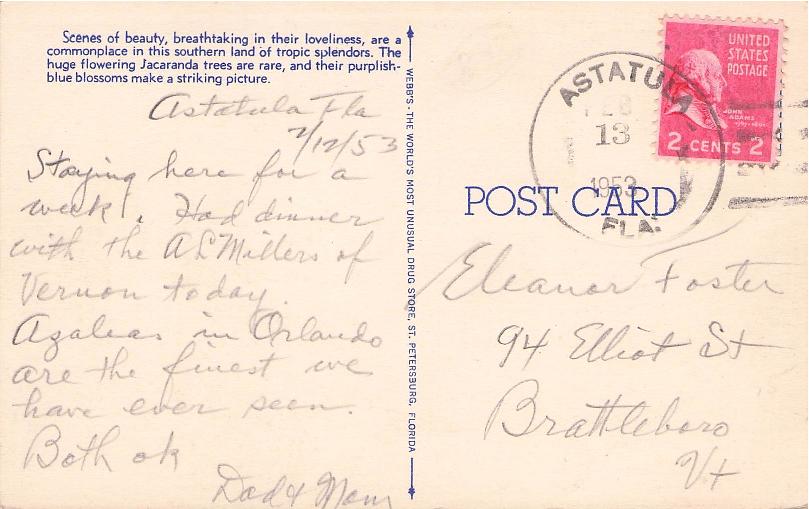 Scenes of beauty, breathtaking in their loveliness, are a
commonplace in this southern land of tropic splendors. The
huge flowering Jacaranda trees are rare, and their purplish-
blue blossoms make a striking picture.
Astatula Fla
2/12/53
Staying here for a
week. Had dinner
with the A L Millers of
Vernon today.
Azaleas in Orlando
are the finest we
have ever seen.
Both ok
Dad & Mom
WEBB'S - THE WORLD'S MOST UNUSUAL DRUG STORE, ST. PETERSBURG, FLORIDA
ASTATULA
FEB
13
1953
FLA.
UNITED
STATES
POSTAGE
JOHN
ADAMS
2 CENTS 2
POST CARD
Eleanor Foster
94 Elliot St
Brattleboro
Vt